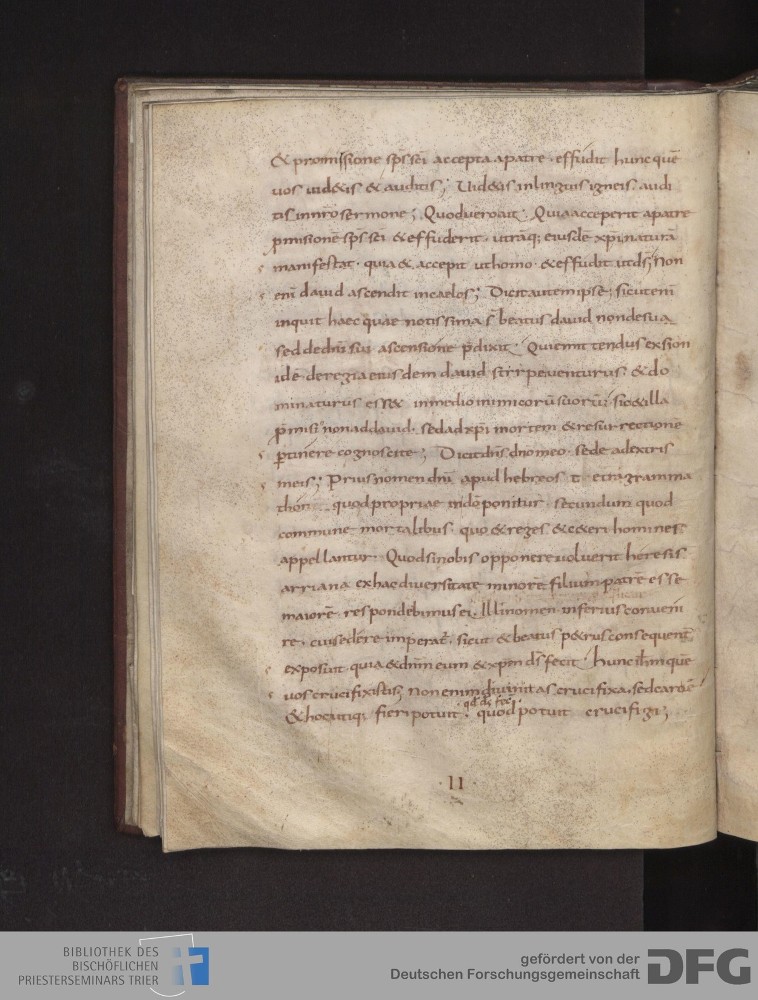 & promissione sp̄s sc̄i accepta a patre · effudit hunc quē
uos uid&is & auditis; Uid&is in linguis igneis · audi
tis in nr̄o sermone; Quod uero ait · Quia acceperit a patre
p̱misionē sp̄s sc̄i & effuderit · utrāq; eiusdē xp̄i naturā
manifestat · quia & accepit ut homo · & effudit ut d̄s; Non
eni dauid ascendit in caelos; Dicit autem ipse; sicut eni
inquit haec quae notissima s̄ beatus dauid non de sua
sed de dn̄i sui ascensione p̄dixit · Qui emittendus ex sion
idē de regia eiusdem dauid stirpe uenturus · & do
minaturus ess& in medio inimicorū suorū; sic & illa
p̱misio non ad dauid · sed ad xp̄i mortem & resurrectionē
p̱tinere cognoscite; Dicit dn̄s dn̄o meo · sede a dextris
meis; Prius nomen dn̄i apud hebreos t&ragramma
thon quod propriae in dō ponitur · secundum quod
commune mortalibus · quo & reges & c&eri homines
appellantur · Quod si nobis opponere uoluerit heresis
arriana ex hac diuersitate minorē filium patrē esse
maiorē · respondebimus ei · Illi nomen inferius conueni
re · cui sedere imperat · sicut & beatus p&rus consequent̄
exposuit quia & dn̄m eum & xp̄m d̄s fecit · hunc ih̄m quē
uos crucifixistis; Non enim diuinitas crucifixa · sed caro ē
qd̄ d̄s fec̄
& hoc utiq; fieri potuit · quod potuit crucifigi;
· II ·
BIBLIOTHEK DES
BISCHÖFLICHEN
PRIESTERSEMINARS TRIER
gefördert von der
Deutschen Forschungsgemeinschaft
DFG